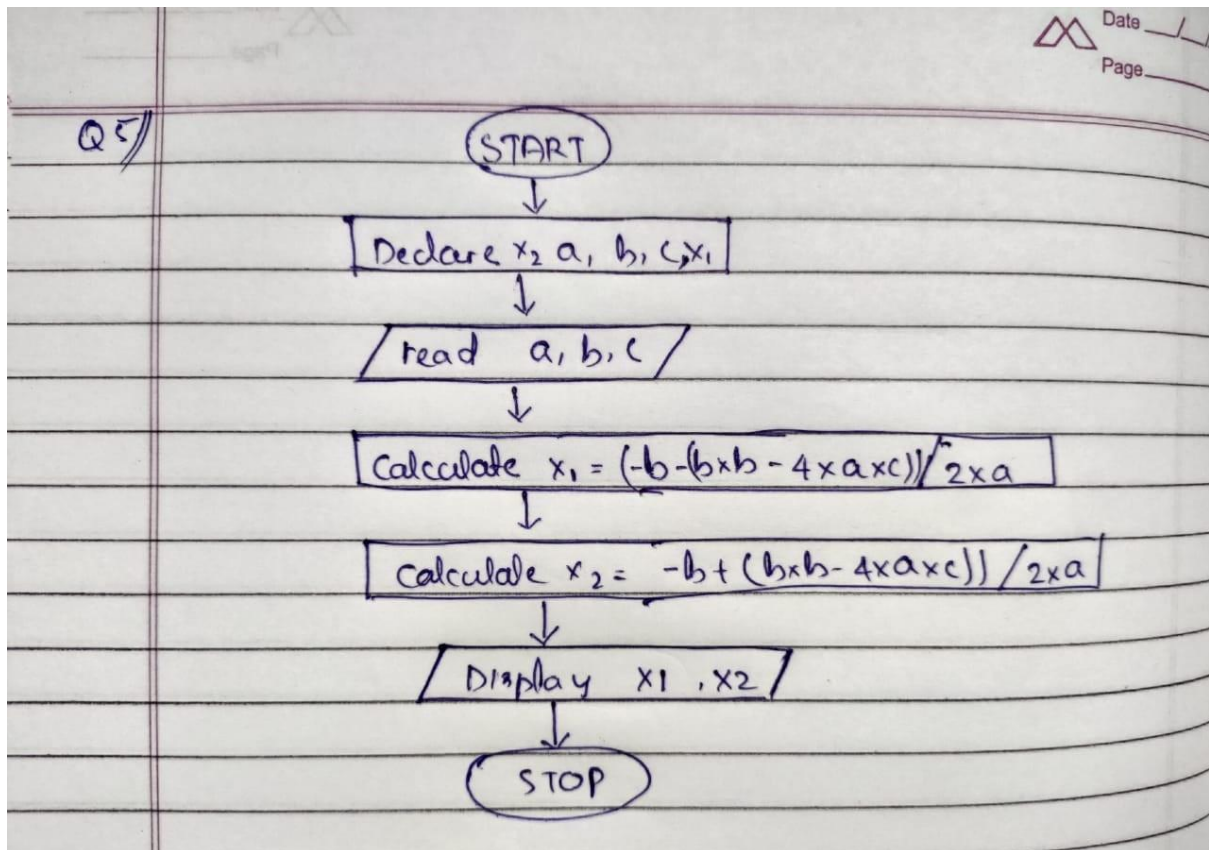 Date
Page
Q5
START
Declare x₂ a, b, c, x₁
read a, b, c
Calculate x₁ = (-b-(b×b - 4×a×c))/2×a
Calculate x₂ = -b+(b×b-4×a×c))/2×a
Display X1, X2
STOP